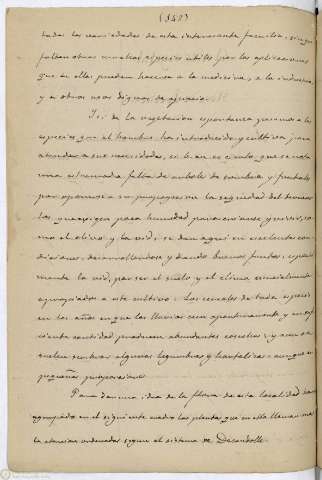 (342)
todas las variedades de esta interesante familia, sin que
faltan otras muchas especies utiles por las aplicaciones
que de ellas pueden hacerse a la medicina, a la industria,
y a otros usos dignos de aprecio.
Si de la vegetacion espontanea pasamos a las
especies que el hombre ha introducido y cultiva para
atender a sus necesidades, si bien es cierto que se nota
una estremada falta de arboles de sombra y frutales
por oponerse a su propagacion la sequedad del terreno
los que exigen poca humedad para criarse y vivir, co-
mo el olivo y la vid, se dan aqui en escelentes con-
diciones, desarrollandose y dando buenos frutos, especial-
mente la vid, por ser el suelo y el clima esencialmente
apropiados a este cultivo. Los cereales de toda especie
en los años en que las lluvias caen oportunamente y en su-
ficiente cantidad producen abundantes cosechas, y aun se
suelen sembrar algunas legumbres y hortalizas aunque en
pequeñas proporciones.
Para dar una idea de la flora de esta localidad he
agrupado en el siguiente cuadro las plantas que en ella llaman mas
la atencion ordenadas segun el sistema de Decandolle.